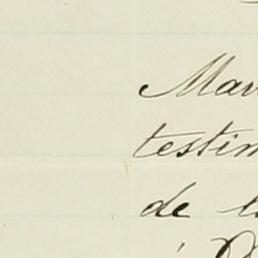 Mar
testim
de l